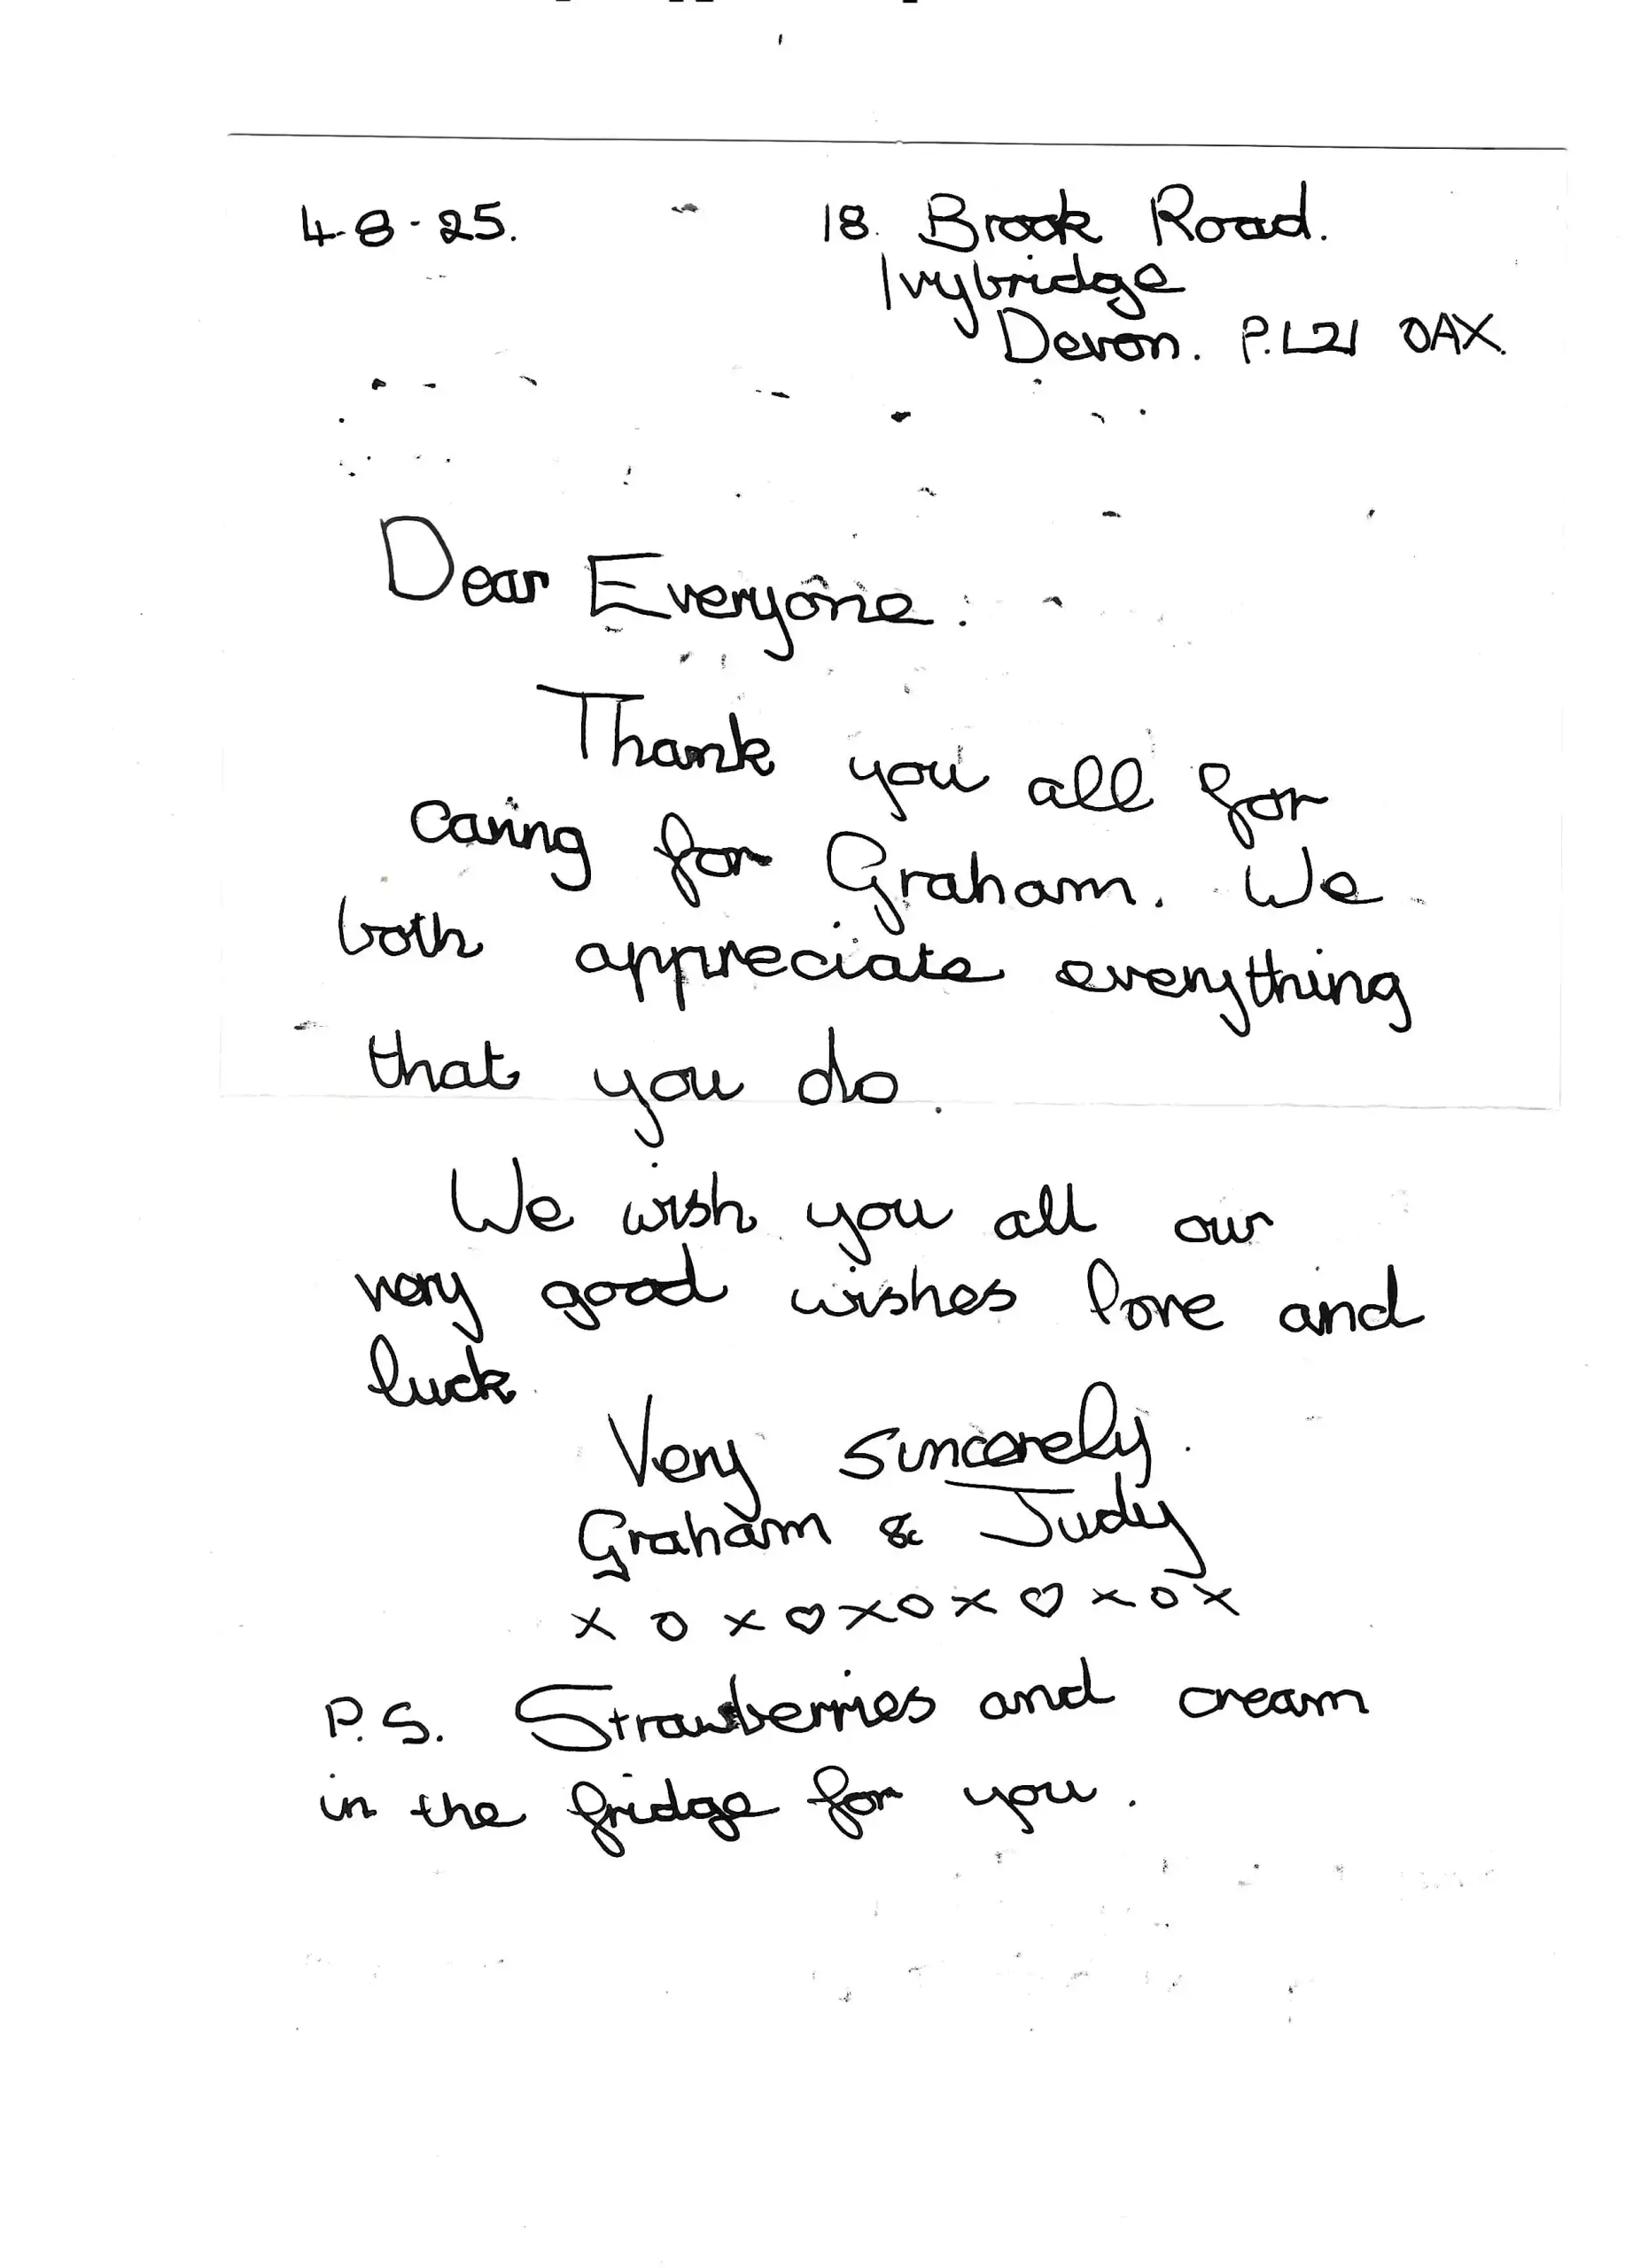 4-8-25. 18. Brook Road.
Ivybridge
Devon. P.L21 0AX.
Dear Everyone.
Thank you all for
caring for Graham. We
both appreciate everything
that you do.
We wish you all our
very good wishes love and
luck
Very sincerely.
Graham & Judy
x o x ♡ x o x ♡ x o x
P.S. Strawberries and cream
in the fridge for you.